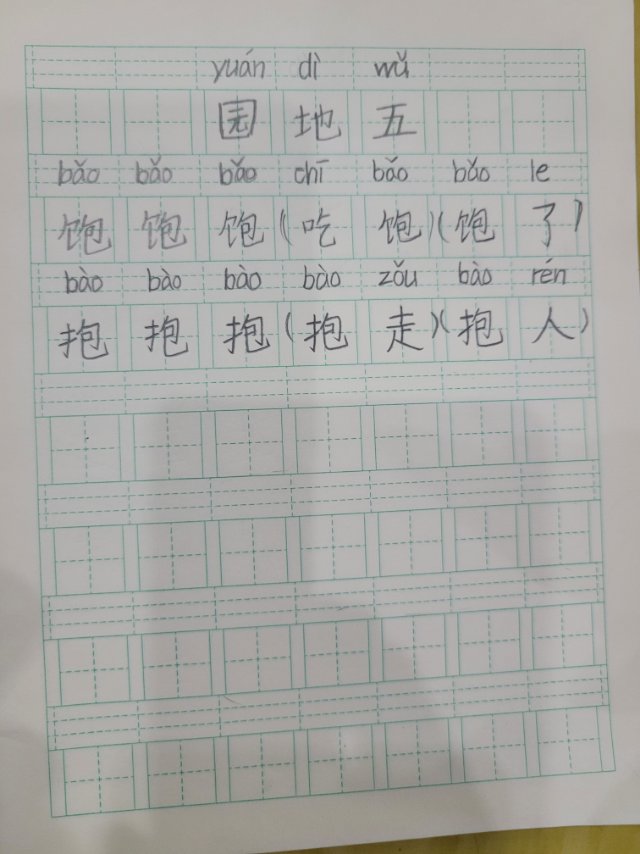 yuán dì wǔ
园 地 五
bǎo bǎo bǎo chī bǎo bǎo le
饱 饱 饱(吃 饱)(饱 了)
bào bào bào bào zǒu bào rén
抱 抱 抱(抱 走)(抱 人)